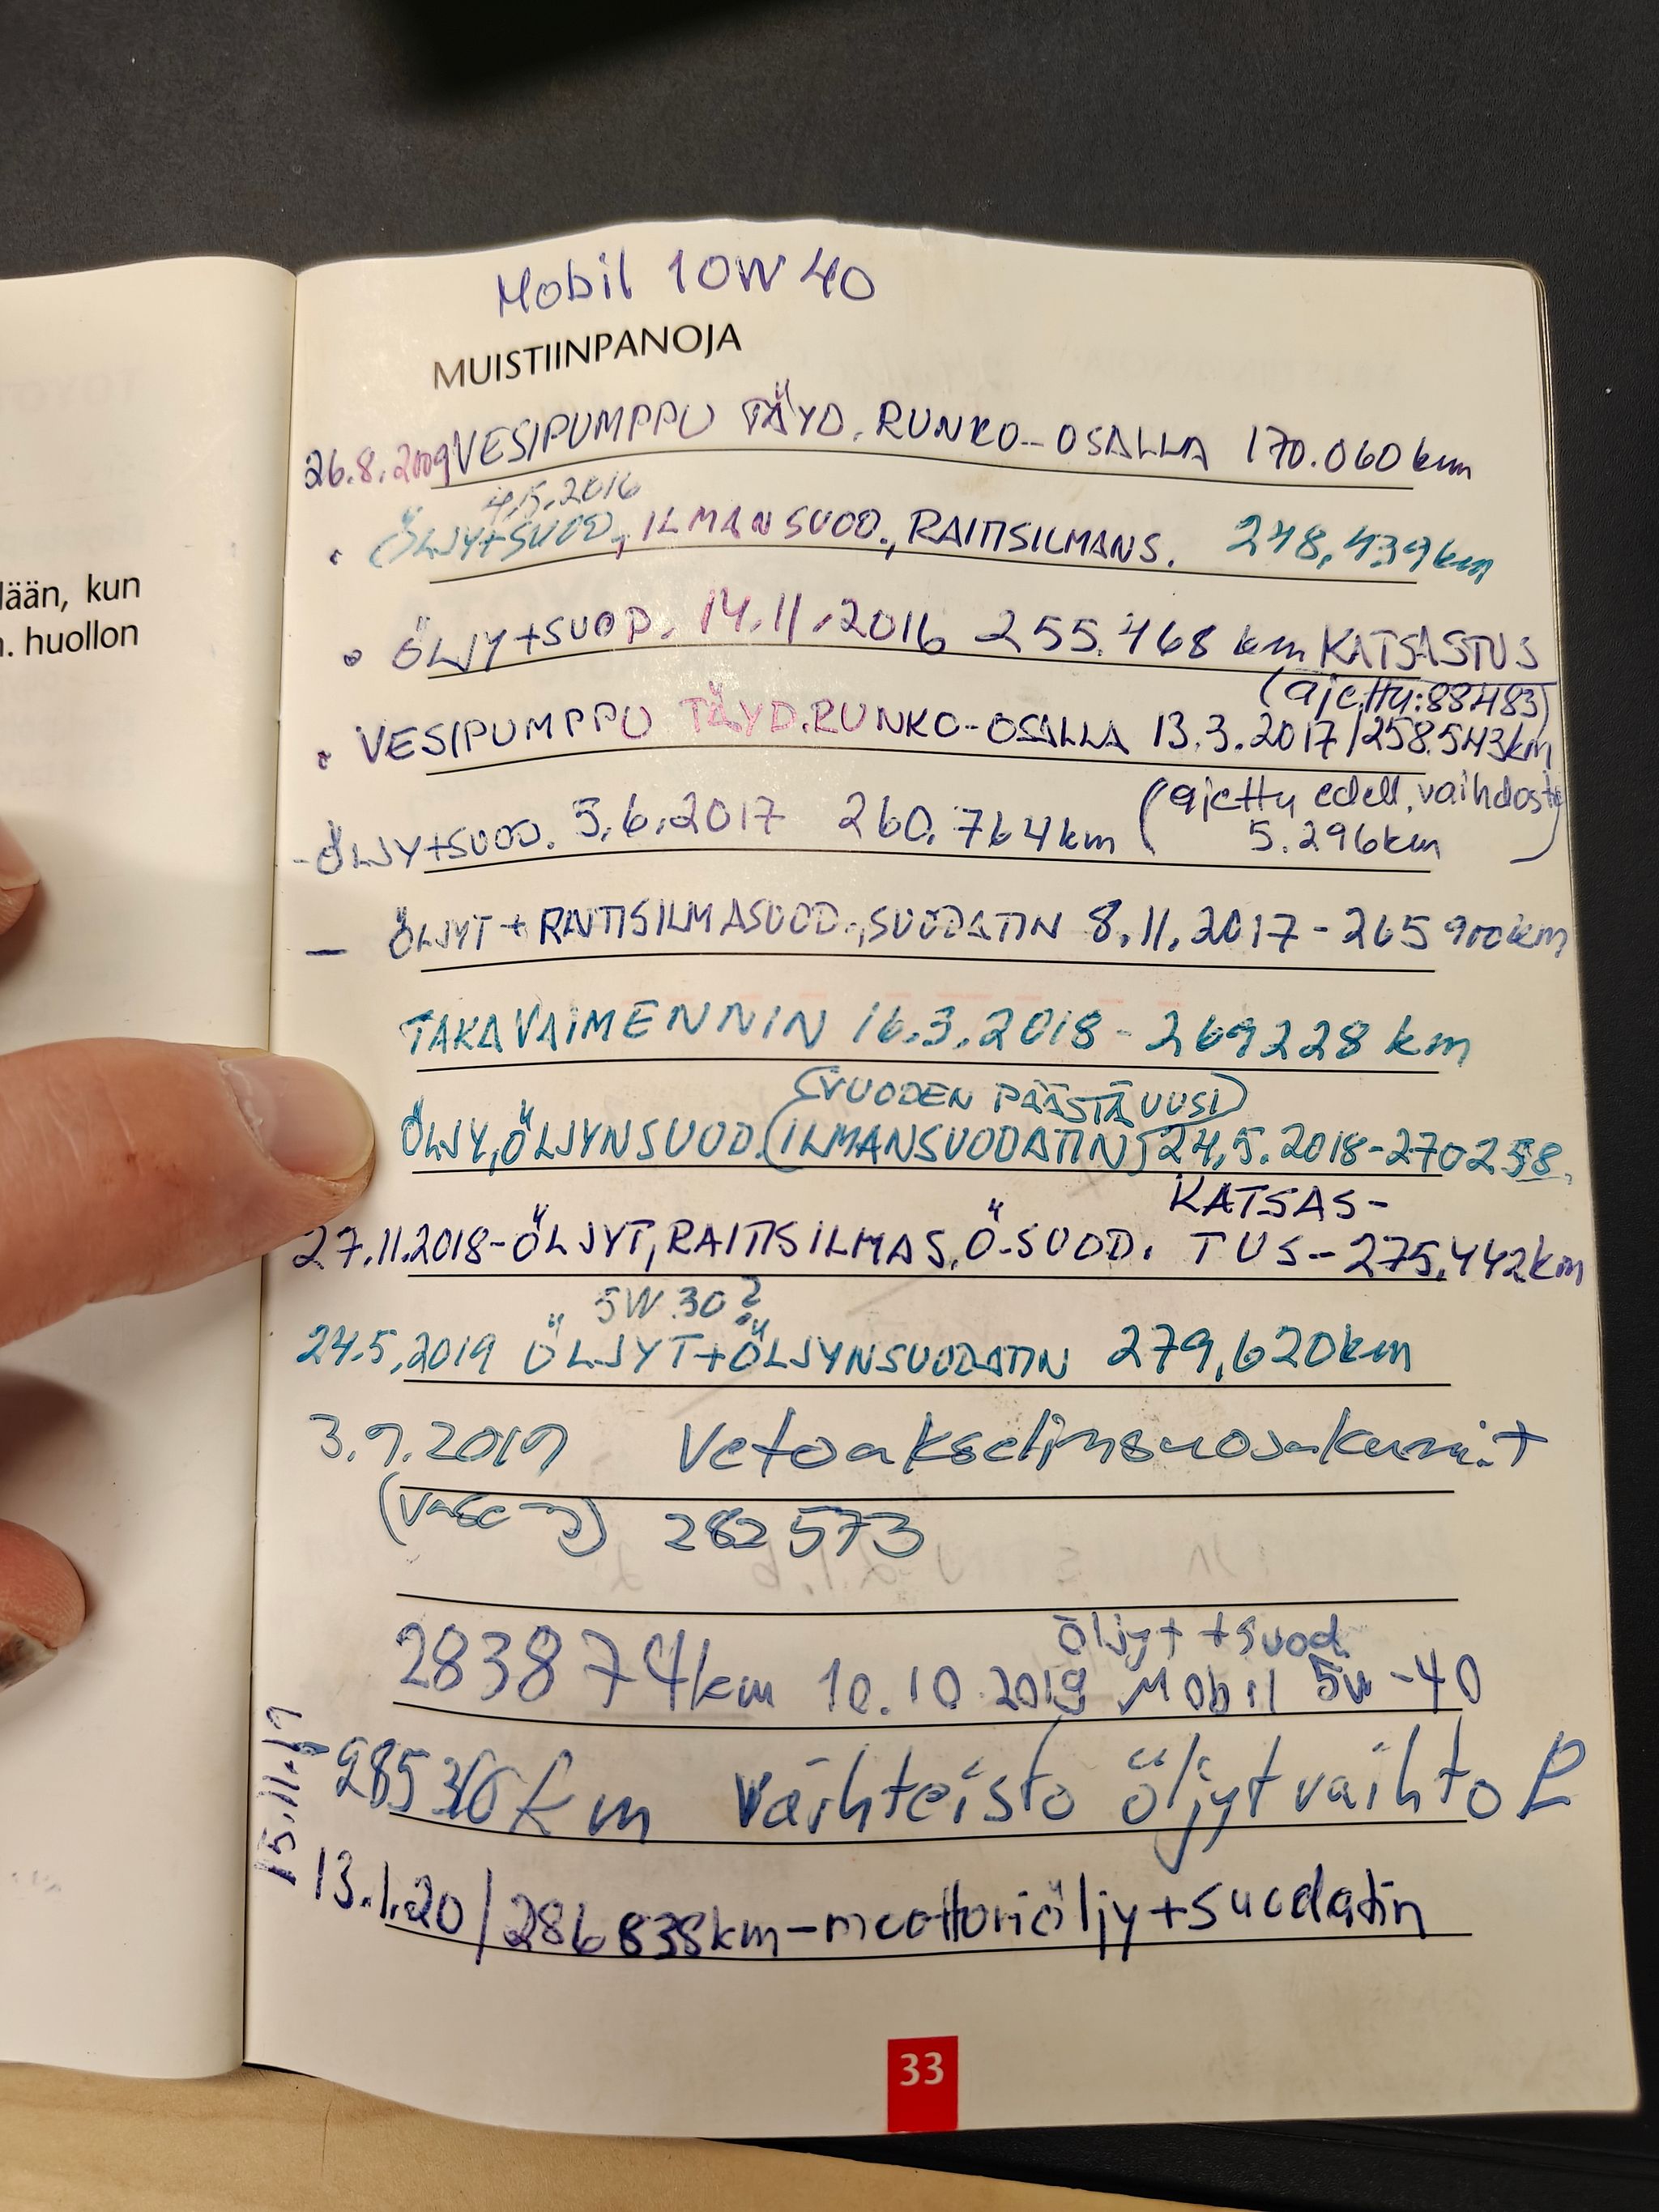 Mobil 10W40
MUISTIINPANOJA
26.8.2009 VESIPUMPPU TÄYD. RUNKO-OSALLA 170.060 km
4.5.2016
• ÖLJY+SUOD., ILMANSUOD., RAITISILMANS. 248.439 km
• ÖLJY+SUOD. 14.11.2016 255.468 km KATSASTUS
(ajettu: 88483)
• VESIPUMPPU TÄYD. RUNKO-OSALLA 13.3.2017/258.543km
(ajettu edell. vaihdosta
- ÖLJY+SUOD. 5.6.2017 260.764km 5.296km)
- ÖLJYT + RAITISILMASUOD., SUODATIN 8.11.2017 - 265 900km
TAKAVAIMENNIN 16.3.2018 - 269228 km
(VUODEN PÄÄSTÄ UUSI)
ÖLJY, ÖLJYNSUOD. (ILMANSUODATIN) 24.5.2018-270258.
KATSAS-
27.11.2018-ÖLJYT, RAITISILMAS, Ö-SUOD. TUS-275.442km
5W30?
24.5.2019 ÖLJYT+ÖLJYNSUODATIN 279.620km
3.9.2019 Vetoakselinsuojakumit
(vasen) 282573
öljyt +suod
283874km 10.10.2019 Mobil 5w-40
15.11.19
km Vaihteisto öljyt vaihto
13.1.20/286838km-moottoriöljy+suodatin
33
lään, kun
. huollon